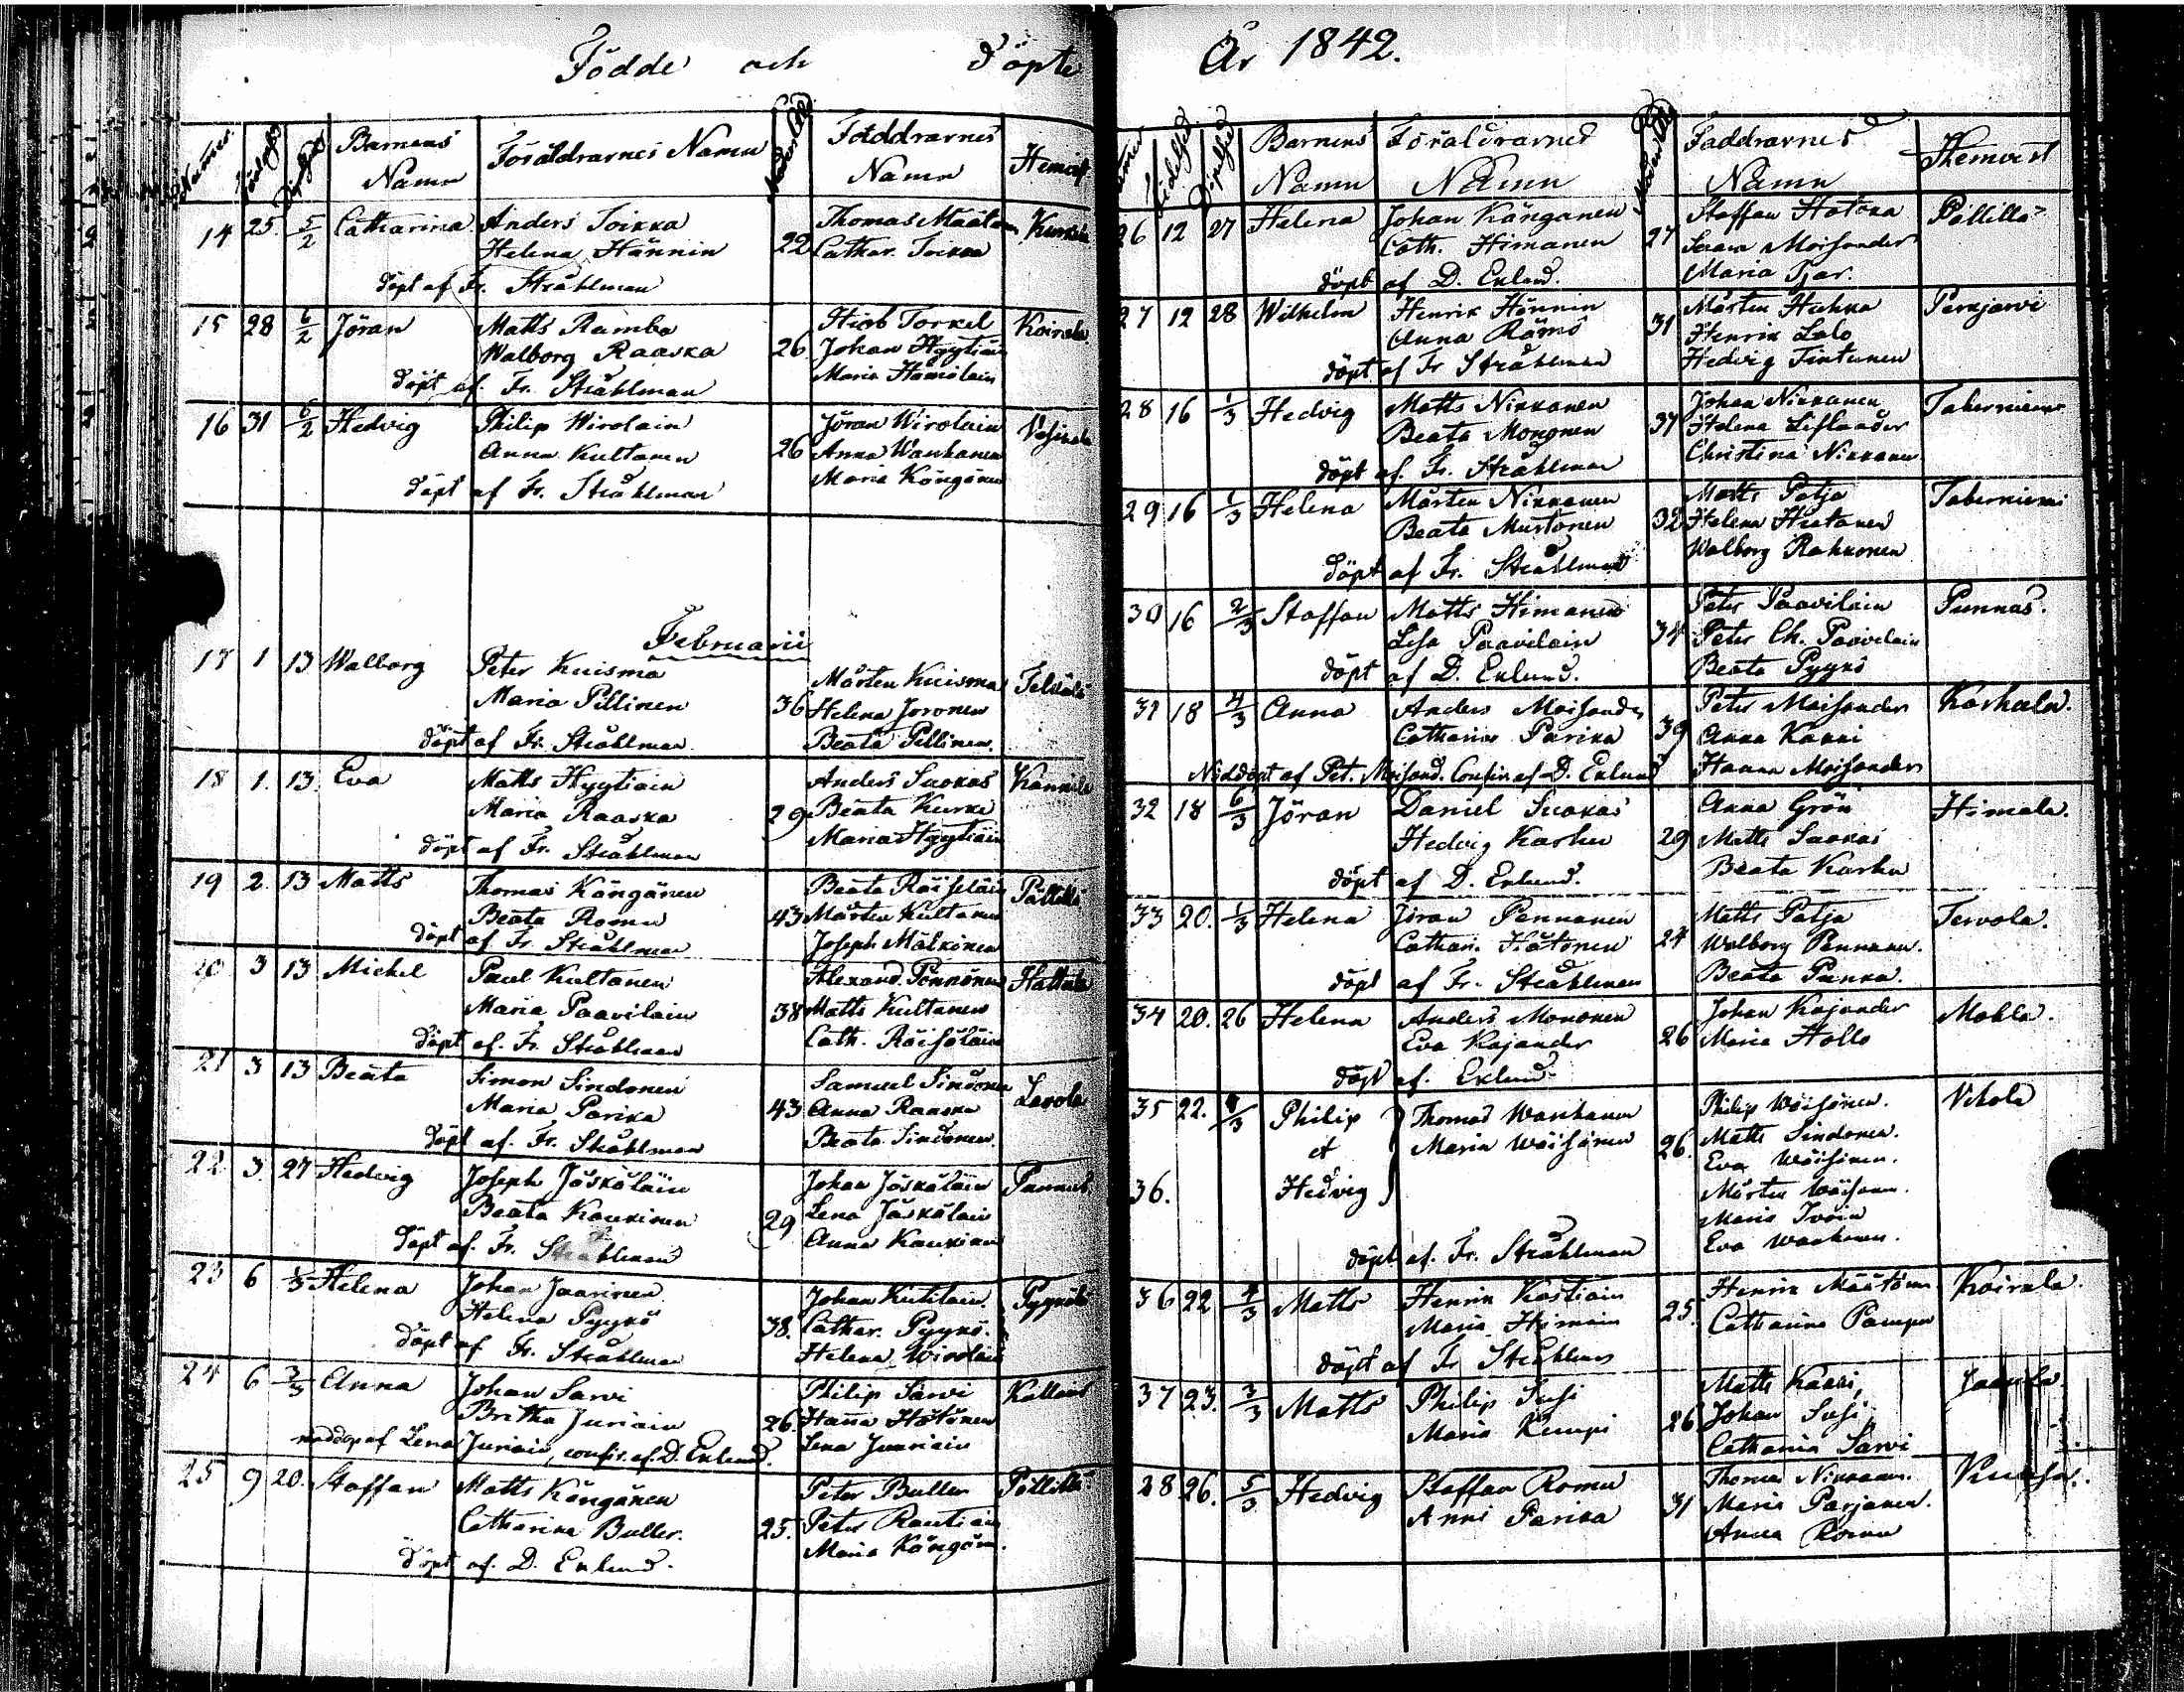 Födde och döpte
Nummer Födelsed. Döpelsed. Barnens Namn Föräldrarnes Namn Moders Ålder Faddrarnes Namn Hemvist
14 25. 5/2 Catharina Anders Toikka Thomas Määtän Kurkela
Helena Hännin 22 Cathar. Toikka
döpt af Fr. Stråhlman
15 28 6/2 Jöran Matts Rämbo Hiob Torkel Koirala
Walborg Raaska 26 Johan Hyytiäin
döpt af Fr. Stråhlman Maria Hämäläin
16 31 6/2 Hedvig Philip Wirolain Jöran Wirolain
Anna Kultanen 26 Anna Wanhanen
döpt af Fr. Stråhlman Maria Köngänen
Februarii
17 1 13 Walborg Peter Kuisma Mårten Kuisma
Maria Pillinen 36 Helena Joronen
döpt af Fr. Stråhlman Beata Pillinen.
18 1. 13. Eva Matts Hyytiäin Anders Suokas Kannila
Maria Raaska 29 Beata Kurki
döpt af Fr. Stråhlman Maria Hyytiäin
19 2. 13 Matts Thomas Kängänen Beata Räisäläin Pällilä
Beata Romu 43 Mårten Kultanen
döpt af Fr. Stråhlman Joseph Mälkönen
20 3 13 Michel Paul Kultanen Alexand. Pönnönen Hattula
Maria Paavilain 38 Matts Kultanen
döpt af Fr. Stråhlman Cath. Räisäläin
21 3 13 Beata Simon Sindonen Samuel Sindonen Lavola
Maria Parika 43 Anna Raaska
döpt af. Fr. Stråhlman Beata Sindonen.
22 3. 27 Hedvig Joseph Jäskäläin Johan Jäskäläin Punnus
Beata Kaukinen 29 Lena Jäskäläin
döpt af. Fr. Stråhlman Anna Kaukinen
23 6 1/3 Helena Johan Jaarinen Johan Kutilain Pyykölä
Helena Pyykö 38. Cathar. Pyykö.
döpt af Fr. Stråhlman Helena Wirolain
24 6 3/3 Anna Johan Sarvi Philip Sarvi
Britha Juriain 26. Hanna Hätönen
nöddöp. af Lena Juriain, confir. af. D. Eklund. Lena Juuriain
25 9 20. Staffan Matts Kängänen Peter Buller Pällilä
Catharina Buller. 25. Peter Rautiain
döpt af. D. Eklund. Maria Kängän.
År 1842.
Födelsed. Döpelsed. Barnens Namn Föräldrarnes Namn Moders Ålder Faddrarnes Namn Hemvist
26 12 27 Helena Johan Känganen Staffan Hatoka Pällilla
Cath. Himanen 27 Moisander
döpt af D. Eklund. Maria Tjar.
27 12 28 Wilhelm Henrik Hännin Mårten Huhka Perkjarvi
Anna Rämö 31 Henrik Lalo
döpt af Fr Stråhlman Hedvig Tintunen
28 16 1/3 Hedvig Matts Nikkanen Johan Nikkanen Taberniemi
Beata Mononen 37 Helena Liflander
döpt af. Fr. Stråhlman Christina Nikkanen
29 16 1/3 Helena Mårten Nikkanen Matts Patja Taberniemi
Beata Mustonen 32 Helena Hietanen
döpt af Fr. Stråhlman Walborg Rahkonen
30 16 2/3 Staffan Matts Himanen Peter Paavilain Punnas.
Lisa Paavilain 34 Peter Ch. Paavilain
döpt af D. Eklund. Beata Pyykö
31 18 4/3 Anna Anders Moisander Peter Moisander Karhula.
Catharina Parika 39 Anna Kakki
Nöddöpt af Pet. Moisand. Confir. af D. Eklund Hanna Moisander
32 18 6/3 Jöran Daniel Suokas Anna Grön Himala.
Hedvig Karhu 29 Matts Suokas
döpt af D. Eklund. Beata Karhu
33 20. 1/3 Helena Jöran Pennanen Matts Patja Tervola.
Cathari. Hätönen 24 Walborg Pennanen.
döpt af Fr. Stråhlman Beata Punka.
34 20. 26 Helena Anders Mononen Johan Kajander Mokla.
Eva Kajander 26 Maria Hollo
döpt af. Eklund.
35 22. 4/3 Philip Thomas Wanhanen Philip Wäisänen.
et Maria Wäisänen 26. Matts Sindonen.
Eva Wäisänen.
36. Hedvig Mårten Wäisänen.
Maria Ivoin
döpt af. Fr. Stråhlman Eva Wanhanen.
36 22 4/3 Matts Henrik Kostiain Henrik Määtänen Koirala.
Maria Himain 25. Catharina Pamppu
döpt af Fr Stråhlman
37 23. 3/3 Matts Philip Susi Matts Kaari,
Maria Kemppi 26 Johan Susi,
Catharina Sarvi
28 26. 5/3 Hedvig Staffan Romu Thomas Nikkanen.
Anni Parika 31 Maria Parjanen.
Anna Romu